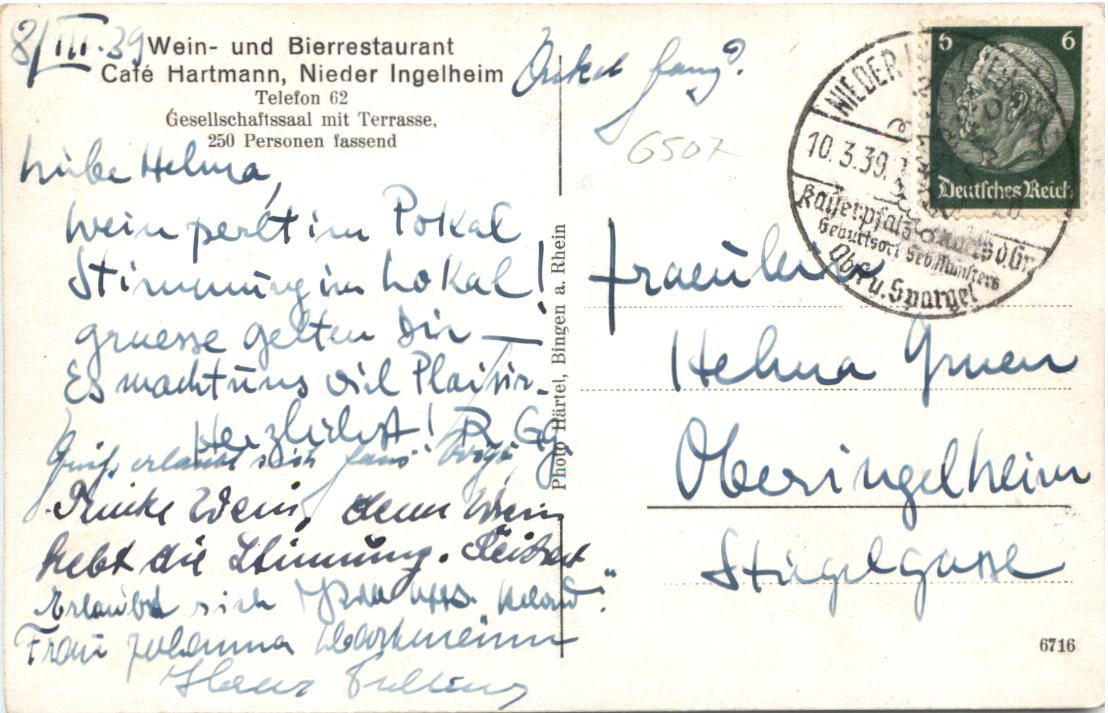 8/III.39
Wein- und Bierrestaurant
Café Hartmann, Nieder Ingelheim
Telefon 62
Gesellschaftssaal mit Terrasse,
250 Personen fassend
Liebe Helma,
Wein perlt im Pokal
Stimmung im Lokal!
gruesse gelten Dir —
Es macht uns viel Plaisir.
Herzlichst!
erlaubt sich
Trinke Wein, denn Wein
hebt die Stimmung.
Erlaubt sich
Frau Johanna
Onkel
6507
Photo Härtel, Bingen a. Rhein
5 6
Deutsches Reich
NIEDER
10.3.39.
Kaiserpfalz Karls d. Gr.
Geburtsort Seb. Münsters
Obst u. Spargel
Fraeulein
Helma Gruen
Oberingelheim
Stiegelgasse
6716